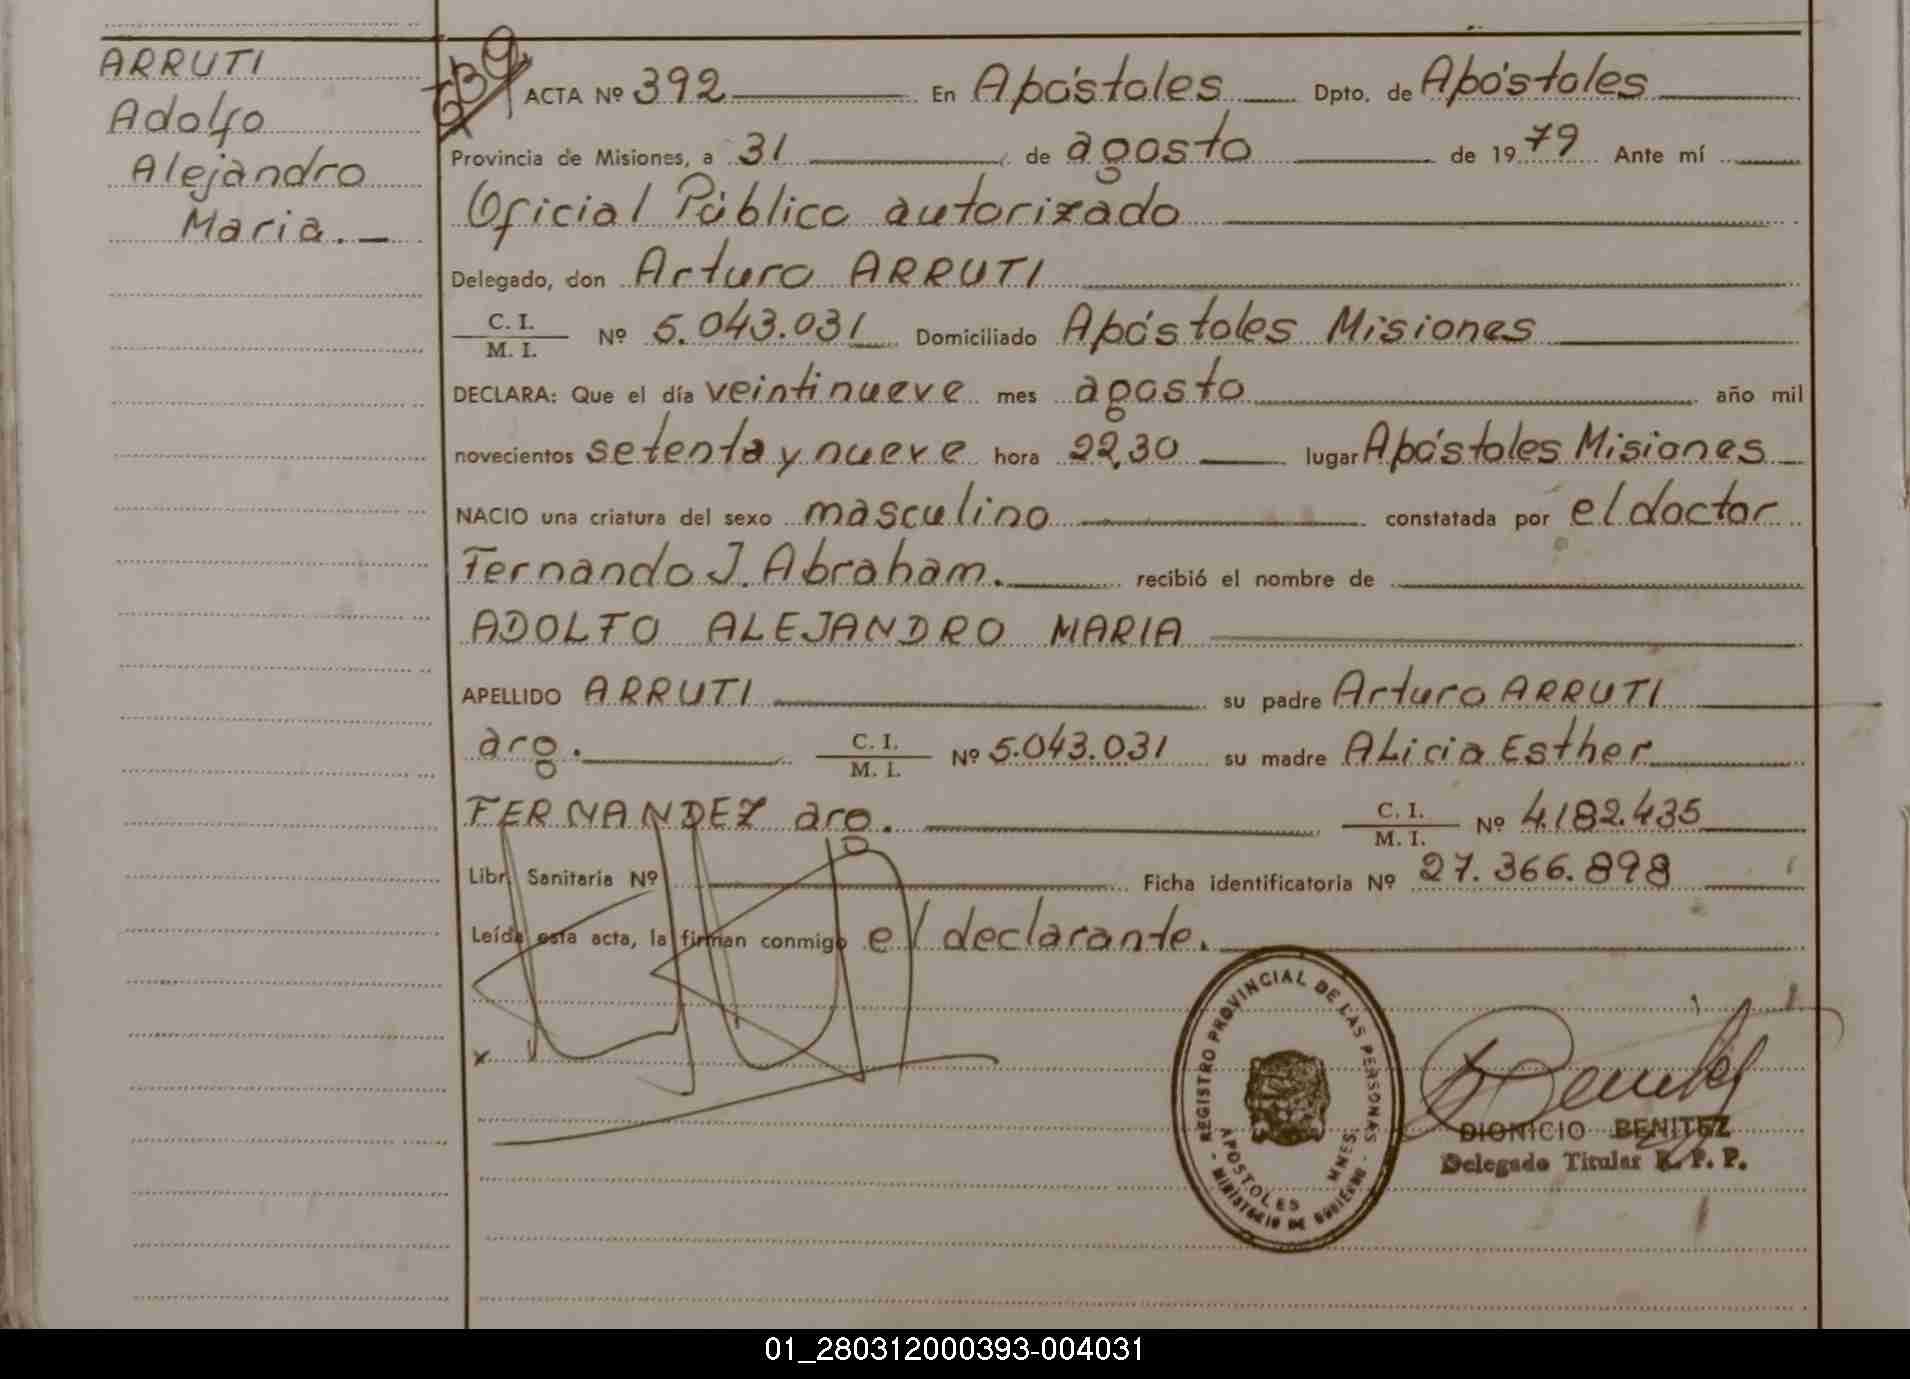 ARRUTI
Adolfo
Alejandro
Maria.
ACTA Nº 392 En Apóstoles Dpto. de Apóstoles
Provincia de Misiones, a 31 de agosto de 1979 Ante mí
Oficial Público autorizado
Delegado, don Arturo ARRUTI
C. I.
M. I. Nº 5.043.031 Domiciliado Apóstoles Misiones
DECLARA: Que el día veintinueve mes agosto año mil
novecientos setenta y nueve hora 22,30 lugar Apóstoles Misiones
NACIO una criatura del sexo masculino constatada por el doctor
Fernando J. Abraham. recibió el nombre de
ADOLFO ALEJANDRO MARIA
APELLIDO ARRUTI su padre Arturo ARRUTI
arg. C. I.
M. I. Nº 5.043.031 su madre ALicia Esther
FERNANDEZ arg. C. I.
M. I. Nº 4.182.435
Libr. Sanitaria Nº Ficha identificatoria Nº 27.366.898
Leída esta acta, la firman conmigo el declarante.
x
REGISTRO PROVINCIAL DE LAS PERSONAS
APOSTOLES MNES.
- MINISTERIO DE GOBIERNO -
DIONICIO BENITEZ
Delegado Titular R. P. P.
01_280312000393-004031